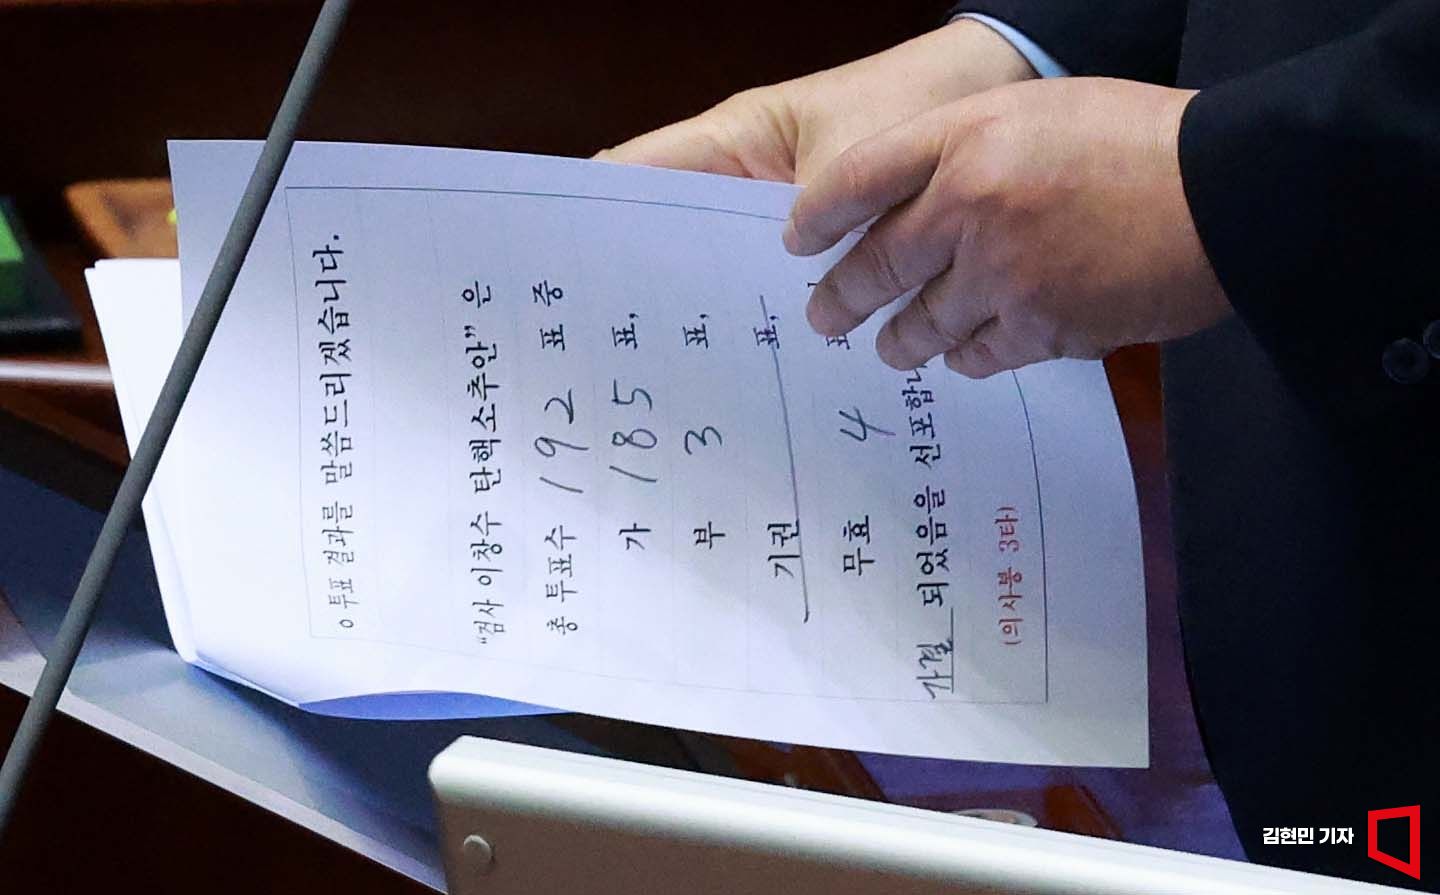 o 투표 결과를 말씀드리겠습니다.
"검사 이창수 탄핵소추안" 은
총 투표수 192 표 중
가 185 표,
부 3 표,
기권 표,
무효 4
가결 되었음을 선포합니
(의사봉 3타)
김현민 기자